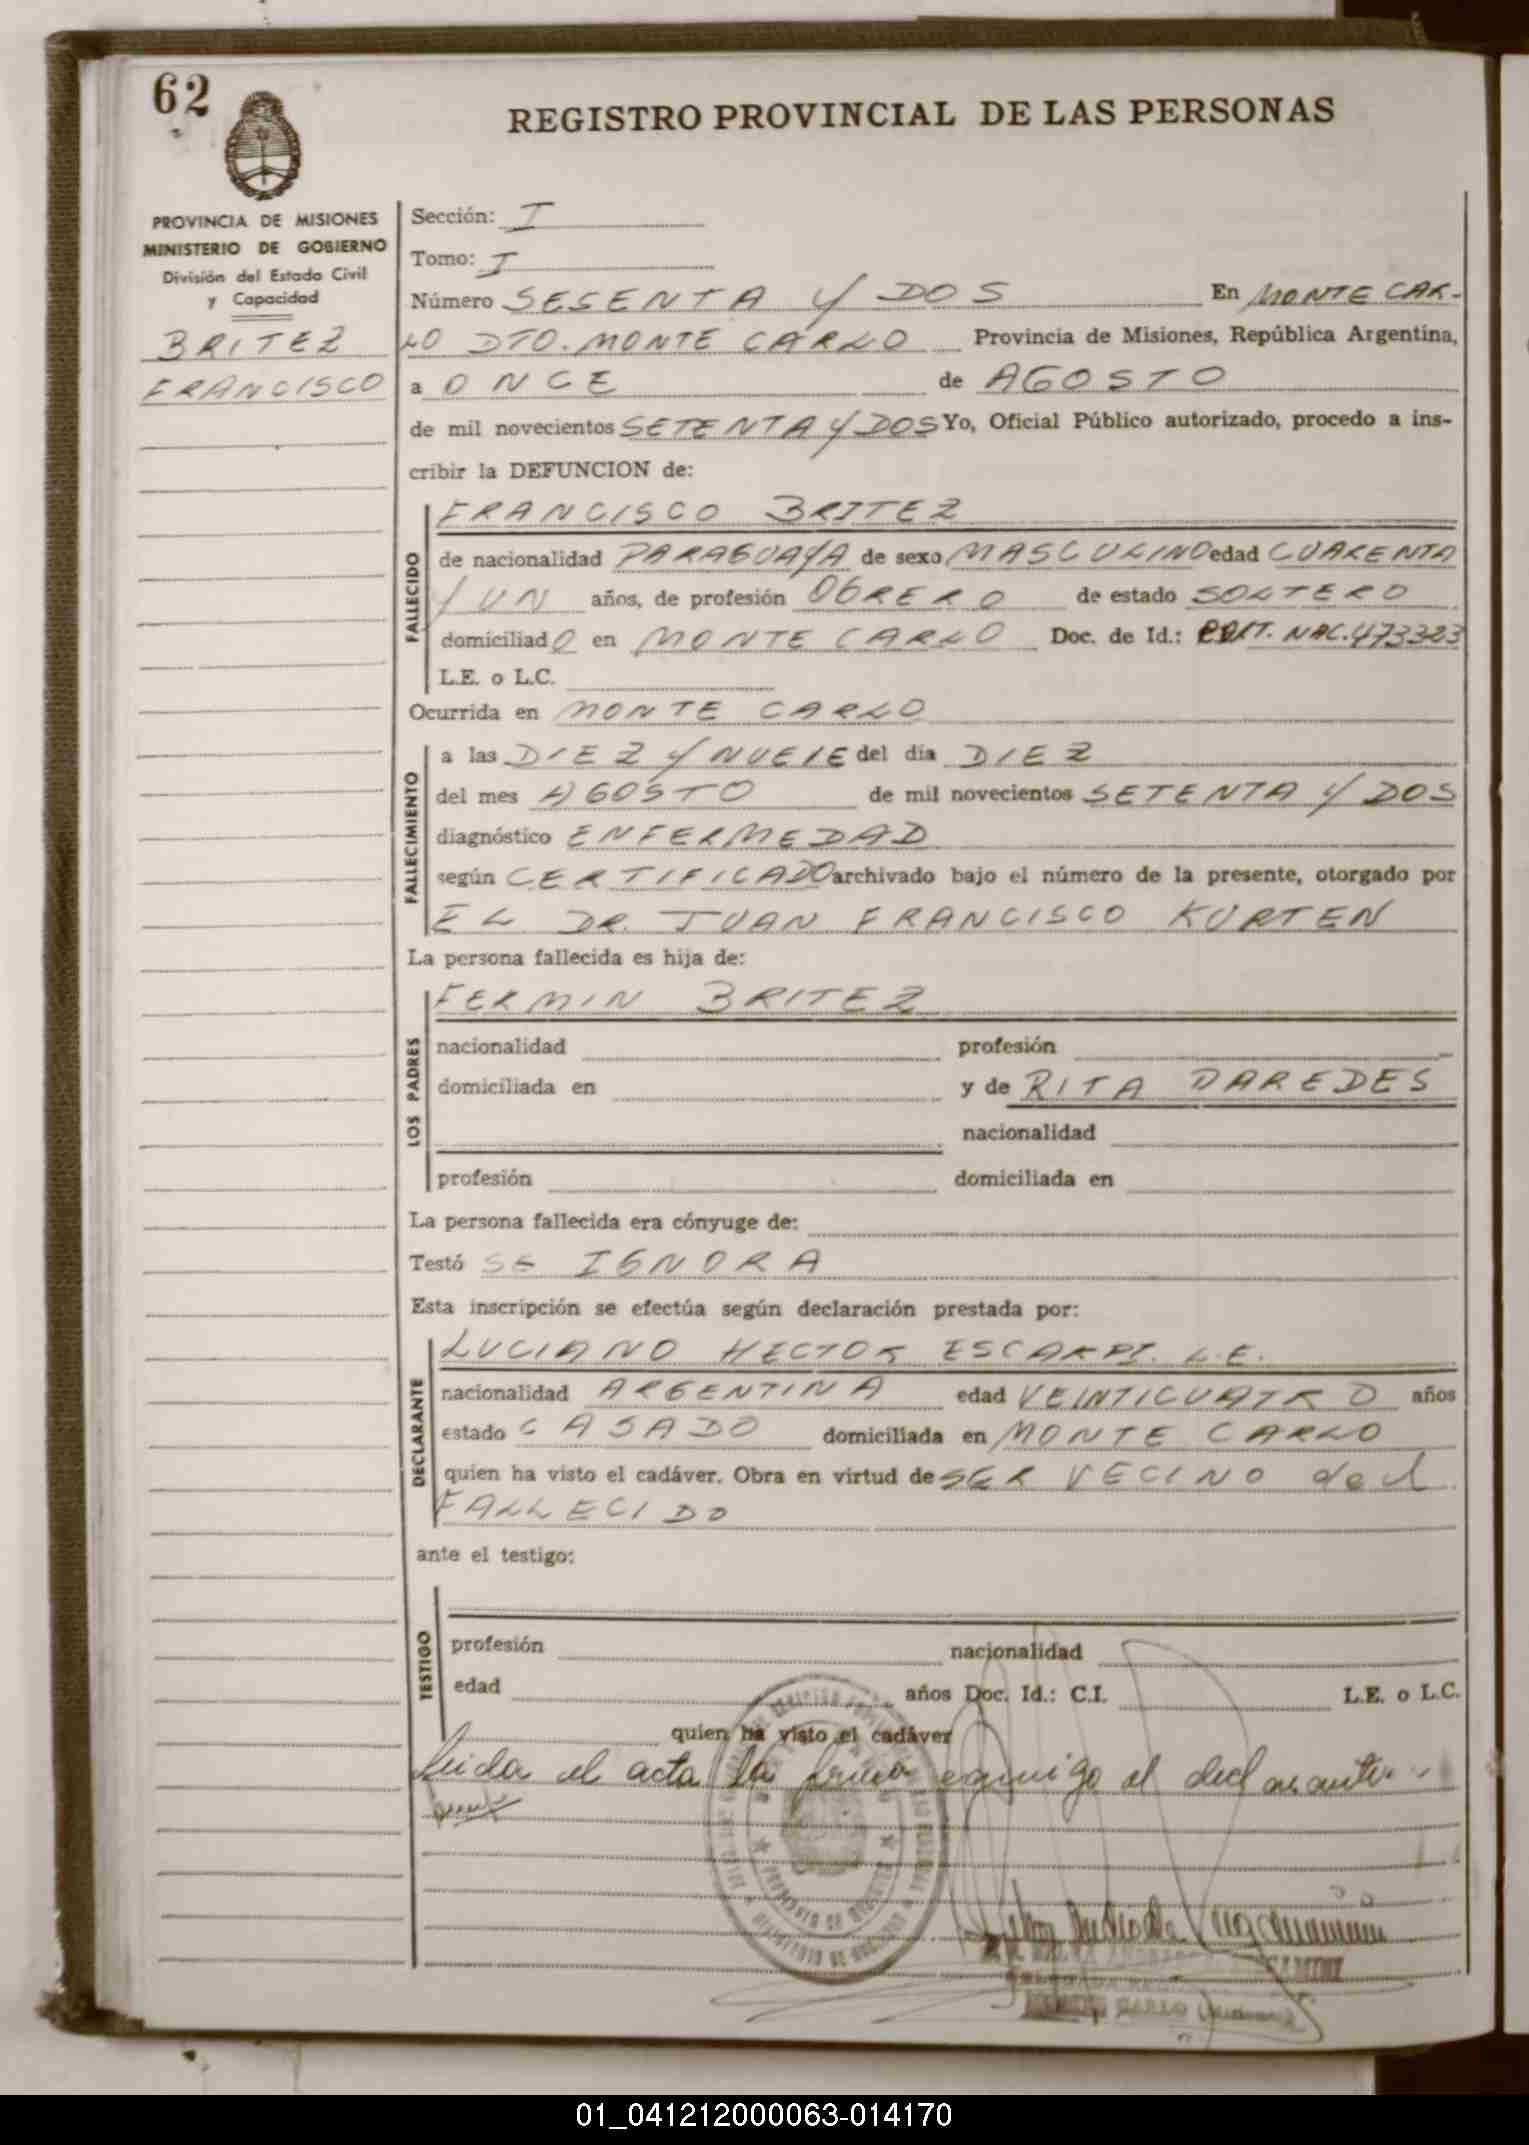 62
REGISTRO PROVINCIAL DE LAS PERSONAS
PROVINCIA DE MISIONES
MINISTERIO DE GOBIERNO
División del Estado Civil
y Capacidad
BRITEZ
FRANCISCO
Sección: I
Tomo: I
Número SESENTA Y DOS En MONTE CAR-
LO DTO. MONTE CARLO Provincia de Misiones, República Argentina,
a ONCE de AGOSTO
de mil novecientos SETENTA Y DOS Yo, Oficial Público autorizado, procedo a ins-
cribir la DEFUNCION de:
FALLECIDO
FRANCISCO BRITEZ
de nacionalidad PARAGUAYA de sexo MASCULINO edad CUARENTA
Y UN años, de profesión OBRERO de estado SOLTERO
domiciliado en MONTE CARLO Doc. de Id.: NAC. 473323
L.E. o L.C.
Ocurrida en MONTE CARLO
FALLECIMIENTO
a las DIEZ Y NUEVE del día DIEZ
del mes AGOSTO de mil novecientos SETENTA Y DOS
diagnóstico ENFERMEDAD
según CERTIFICADO archivado bajo el número de la presente, otorgado por
EL DR. JUAN FRANCISCO KURTEN
La persona fallecida es hija de:
LOS PADRES
FERMIN BRITEZ
nacionalidad profesión
domiciliada en y de RITA PAREDES
nacionalidad
profesión domiciliada en
La persona fallecida era cónyuge de:
Testó SE IGNORA
Esta inscripción se efectúa según declaración prestada por:
DECLARANTE
LUCIANO HECTOR ESCARPI. L.E.
nacionalidad ARGENTINA edad VEINTICUATRO años
estado CASADO domiciliada en MONTE CARLO
quien ha visto el cadáver. Obra en virtud de SER VECINO del
FALLECIDO
ante el testigo:
TESTIGO
profesión nacionalidad
edad años Doc. Id.: C.I. L.E. o L.C.
quien ha visto el cadáver
Leida el acta la firma conmigo el declarante.
MONTE CARLO (Misiones)
01_041212000063-014170